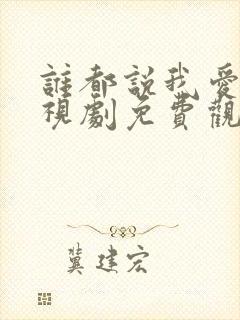 誰都說我愛
視劇免費觀
冀建宏